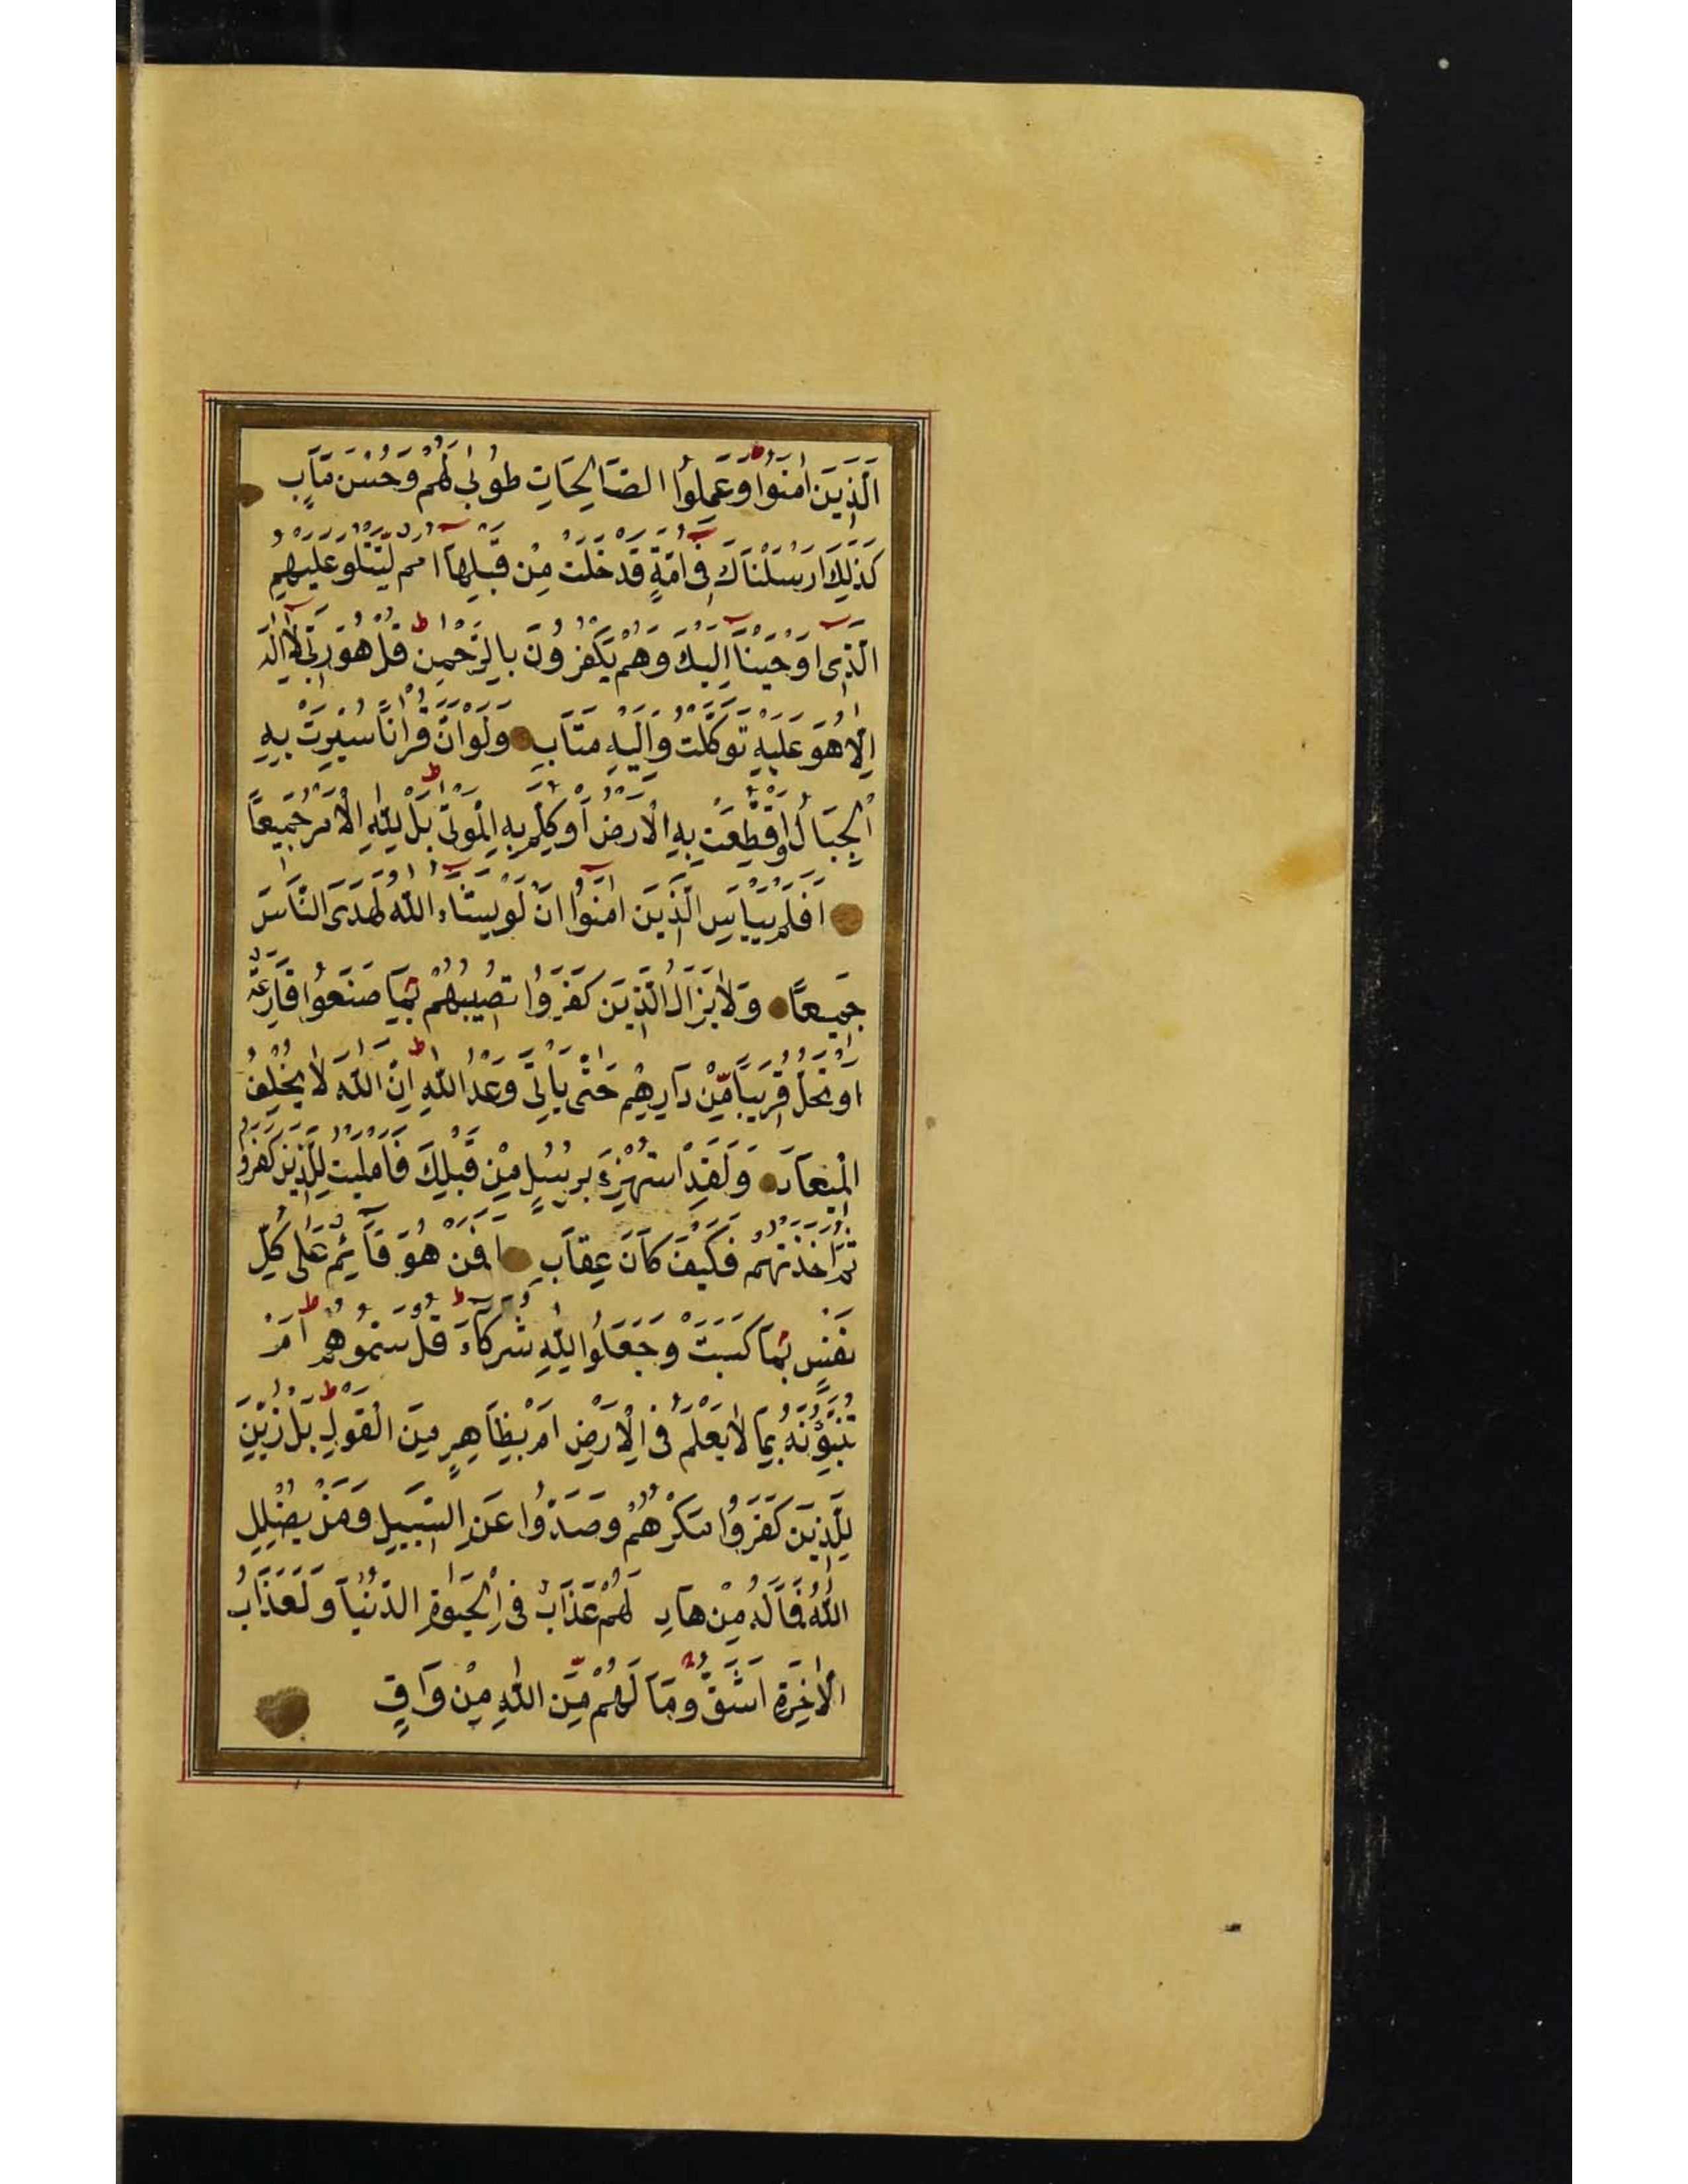 اَلَّذِينَ اٰمَنُوا وَعَمِلُوا الصَّالِحَاتِ طُوبٰى لَهُمْ وَحُسْنُ مَآبٍ
كَذٰلِكَ اَرْسَلْنَاكَ فِى اُمَّةٍ قَدْ خَلَتْ مِنْ قَبْلِهَا اُمَمٌ لِتَتْلُوَ عَلَيْهِمُ
الَّذِى اَوْحَيْنَا اِلَيْكَ وَهُمْ يَكْفُرُونَ بِالرَّحْمٰنِ قُلْ هُوَ رَبِّى لَا اِلٰهَ
اِلَّا هُوَ عَلَيْهِ تَوَكَّلْتُ وَاِلَيْهِ مَتَابِ وَلَوْ اَنَّ قُرْاٰنًا سُيِّرَتْ بِهِ
الْجِبَالُ اَوْ قُطِّعَتْ بِهِ الْاَرْضُ اَوْ كُلِّمَ بِهِ الْمَوْتٰى بَلْ لِلّٰهِ الْاَمْرُ جَمِيعًا
اَفَلَمْ يَيْاَسِ الَّذِينَ اٰمَنُوا اَنْ لَوْ يَشَاءُ اللّٰهُ لَهَدَى النَّاسَ
جَمِيعًا وَلَا يَزَالُ الَّذِينَ كَفَرُوا تُصِيبُهُمْ بِمَا صَنَعُوا قَارِعَةٌ
اَوْ تَحُلُّ قَرِيبًا مِّنْ دَارِهِمْ حَتّٰى يَاْتِىَ وَعْدُ اللّٰهِ اِنَّ اللّٰهَ لَا يُخْلِفُ
الْمِيعَادَ وَلَقَدِ اسْتُهْزِئَ بِرُسُلٍ مِنْ قَبْلِكَ فَاَمْلَيْتُ لِلَّذِينَ كَفَرُوا
ثُمَّ اَخَذْتُهُمْ فَكَيْفَ كَانَ عِقَابِ اَفَمَنْ هُوَ قَائِمٌ عَلٰى كُلِّ
نَفْسٍ بِمَا كَسَبَتْ وَجَعَلُوا لِلّٰهِ شُرَكَاءَ قُلْ سَمُّوهُمْ اَمْ
تُنَبِّؤُنَهُ بِمَا لَا يَعْلَمُ فِى الْاَرْضِ اَمْ بِظَاهِرٍ مِنَ الْقَوْلِ بَلْ زُيِّنَ
لِلَّذِينَ كَفَرُوا مَكْرُهُمْ وَصَدُّوا عَنِ السَّبِيلِ وَمَنْ يُضْلِلِ
اللّٰهُ فَمَا لَهُ مِنْ هَادٍ لَهُمْ عَذَابٌ فِى الْحَيٰوةِ الدُّنْيَا وَلَعَذَابُ
الْاٰخِرَةِ اَشَقُّ وَمَا لَهُمْ مِّنَ اللّٰهِ مِنْ وَاقٍ